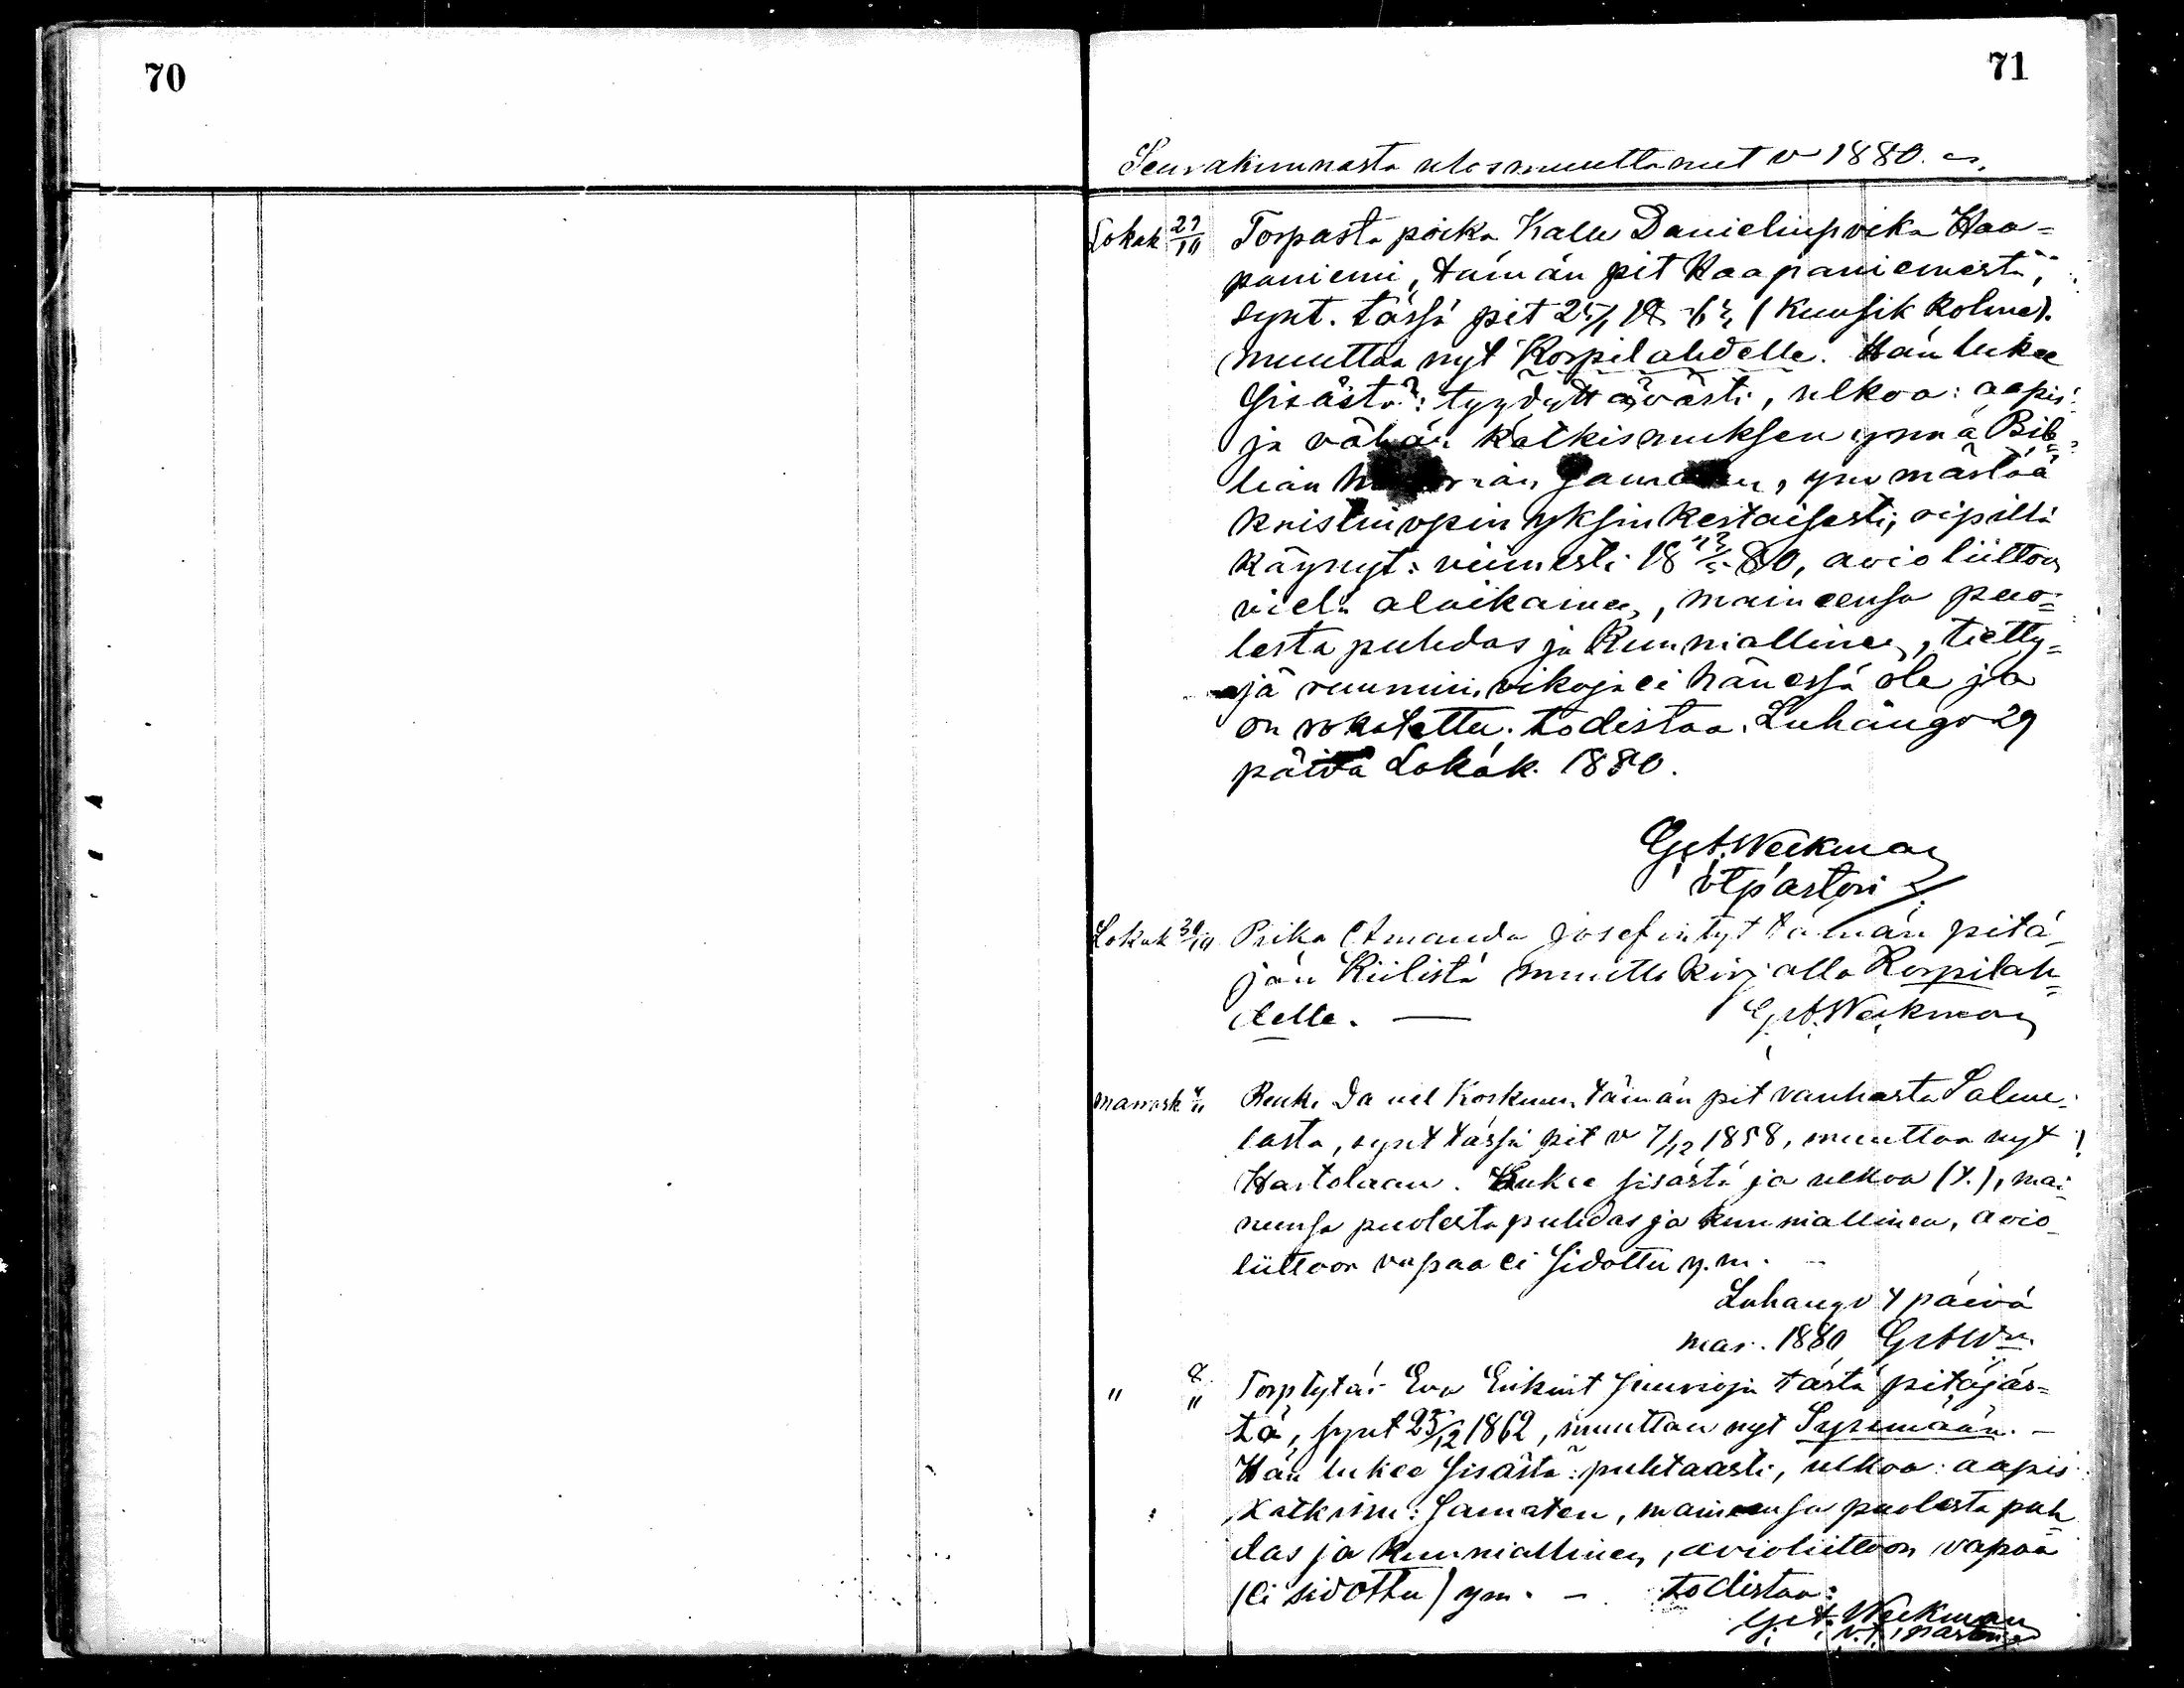 70
71
Seurakunnasta ulosmuuttanut v 1880.
Lokak 29/10 Torpasta poika Kalle Danielinpoika Haa=
paniemi, tämän pit Haapaniemestä,
synt. tässä pit 25/1 18 63 (kuusik kolme).
muuttaa nyt Korpilahdelle. Hän lukee
sisästä: tyydyttävästi, ulkoa: aapis
ja vähän katkismuksen ynnä Bib=
lian samaten, ymmärtää
kristinopin yksinkertaisesti; ripillä
käynyt: viimesti 18 80, avioliittoon
vielä alaikainen, maineensa puo=
lesta puhdas ja kunniallinen, tietty=
jä ruumiin vikoja ei hänessä ole ja
on rokotettu. todistaa. Luhango 29
päivä Lokak. 1880.
G. A. Weckman
vt pastori
Lokak 30/10 Piika Amanda Josefintyt tämän pitä=
jän Kiilistä muuttokirjalla Korpilah=
delle. — G. A. Weckman
marrask 4/11 Renki Daniel Koskinen tämän pit vanhasta Salme=
lasta, synt tässä pit v 7/12 1858, muuttaa nyt
Hartolaan. Lukee sisästä ja ulkoa (t.), mai=
neensa puolesta puhdas ja kunniallinen, avio=
liittoon vapaa ei sidottu y. m.
Luhango 4 päivä
mar. 1880 G. A. Wn.
" 8/11 Torp tytär Eva Erikint tästä pitäjäs=
tä, synt 25/12 1862, muuttaa nyt Sysmään. —
Hän lukee sisästä: puhtaasti, ulkoa: aapis
katkism: samaten, maineensa puolesta puh=
das ja kunniallinen, avioliittoon vapaa
(ei sidottu) ym. — todistaa:
G. A. Weckman
v. t. pastori